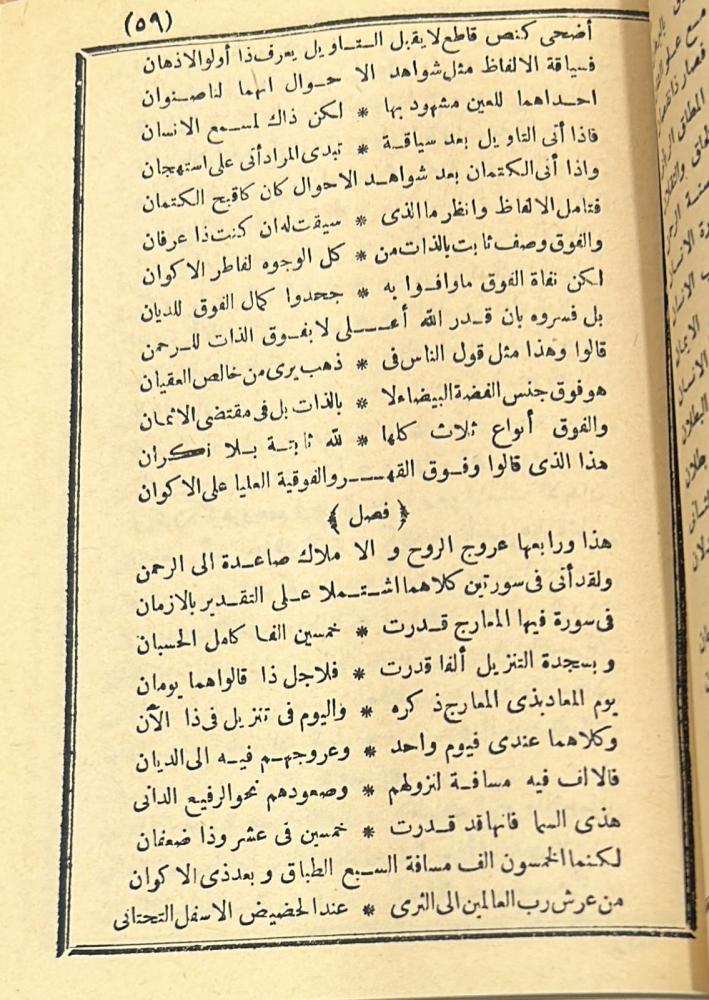 (٥٩)
أضحى كنص قاطع لا يقبل التـاويل يعرف ذا أولو الاذهان
فسياقة الالفاظ مثل شواهد الا حـوال انهما لنا صـنوان
احـداهما للعين مشهود بها * لكن ذاك لمسـمع الانسان
فاذا أتى التاويل بعد سياقـة * تبدى المراد أتى على استهجان
واذا أتى الكتمان بعد شواهـد الاحوال كان كاقبح الكتمان
فتامل الالفاظ وانظر ما الذى * سيقت له ان كنت ذا عرفان
والفوق وصف ثابت بالذات من * كل الوجوه لفاطر الاكوان
لكن نفاة الفوق ماوافـوا به * جحدوا كمال الفوق للديان
بل فسروه بان قـدر الله أعـلى لا بفـوق الذات للـرحمن
قالوا وهذا مثل قول الناس فى * ذهب يرى من خالص العقيان
هو فوق جنس الفضة البيضاء لا * بالذات بل فى مقتضى الاثمان
والفوق أنواع ثلاث كلها * لله ثابتـة بـلا نكـران
هذا الذى قالوا وفـوق القهـر والفوقية العليا على الاكوان
﴿ فصل ﴾
هذا ورابعها عروج الروح و الا ملاك صاعـدة الى الرحمن
ولقد أتى فى سورتين كلاهما اشـتـملا عـلى التقـدير بالازمان
فى سورة فيها المعارج قـدرت * خمسين الفـا كامل الحسبان
وبسجدة التنزيل ألفا قدرت * فلاجل ذا قالوا هما يومان
يوم المعاد بذى المعارج ذكره * واليوم فى تنزيل فى ذا الآن
وكلاهما عندى فيوم واحد * وعروجهـم فيـه الى الديان
فالالف فيه مسافـة لنزولهم * وصعودهم نحو الرفيع الدانى
هذى السما فانها قد قـدرت * خمسين فى عشر وذا ضعفان
لكنما الخمسون الف مسافة السـبع الطباق وبعد ذى الاكوان
من عرش رب العالمين الى الثرى * عند الحضيض الاسفل التحتانى